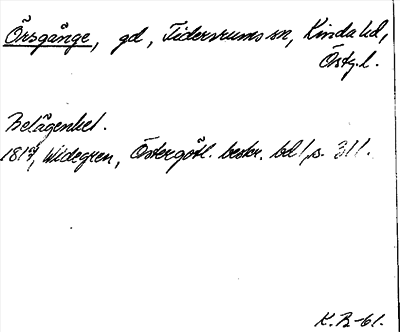 Örsgånge, gd, Tidersrums sn, Kinda hd,
Östg.l.
Belägenhet.
1817, Widegren, Östergötl. beskr. bd 1, s. 311.
K.B-61.